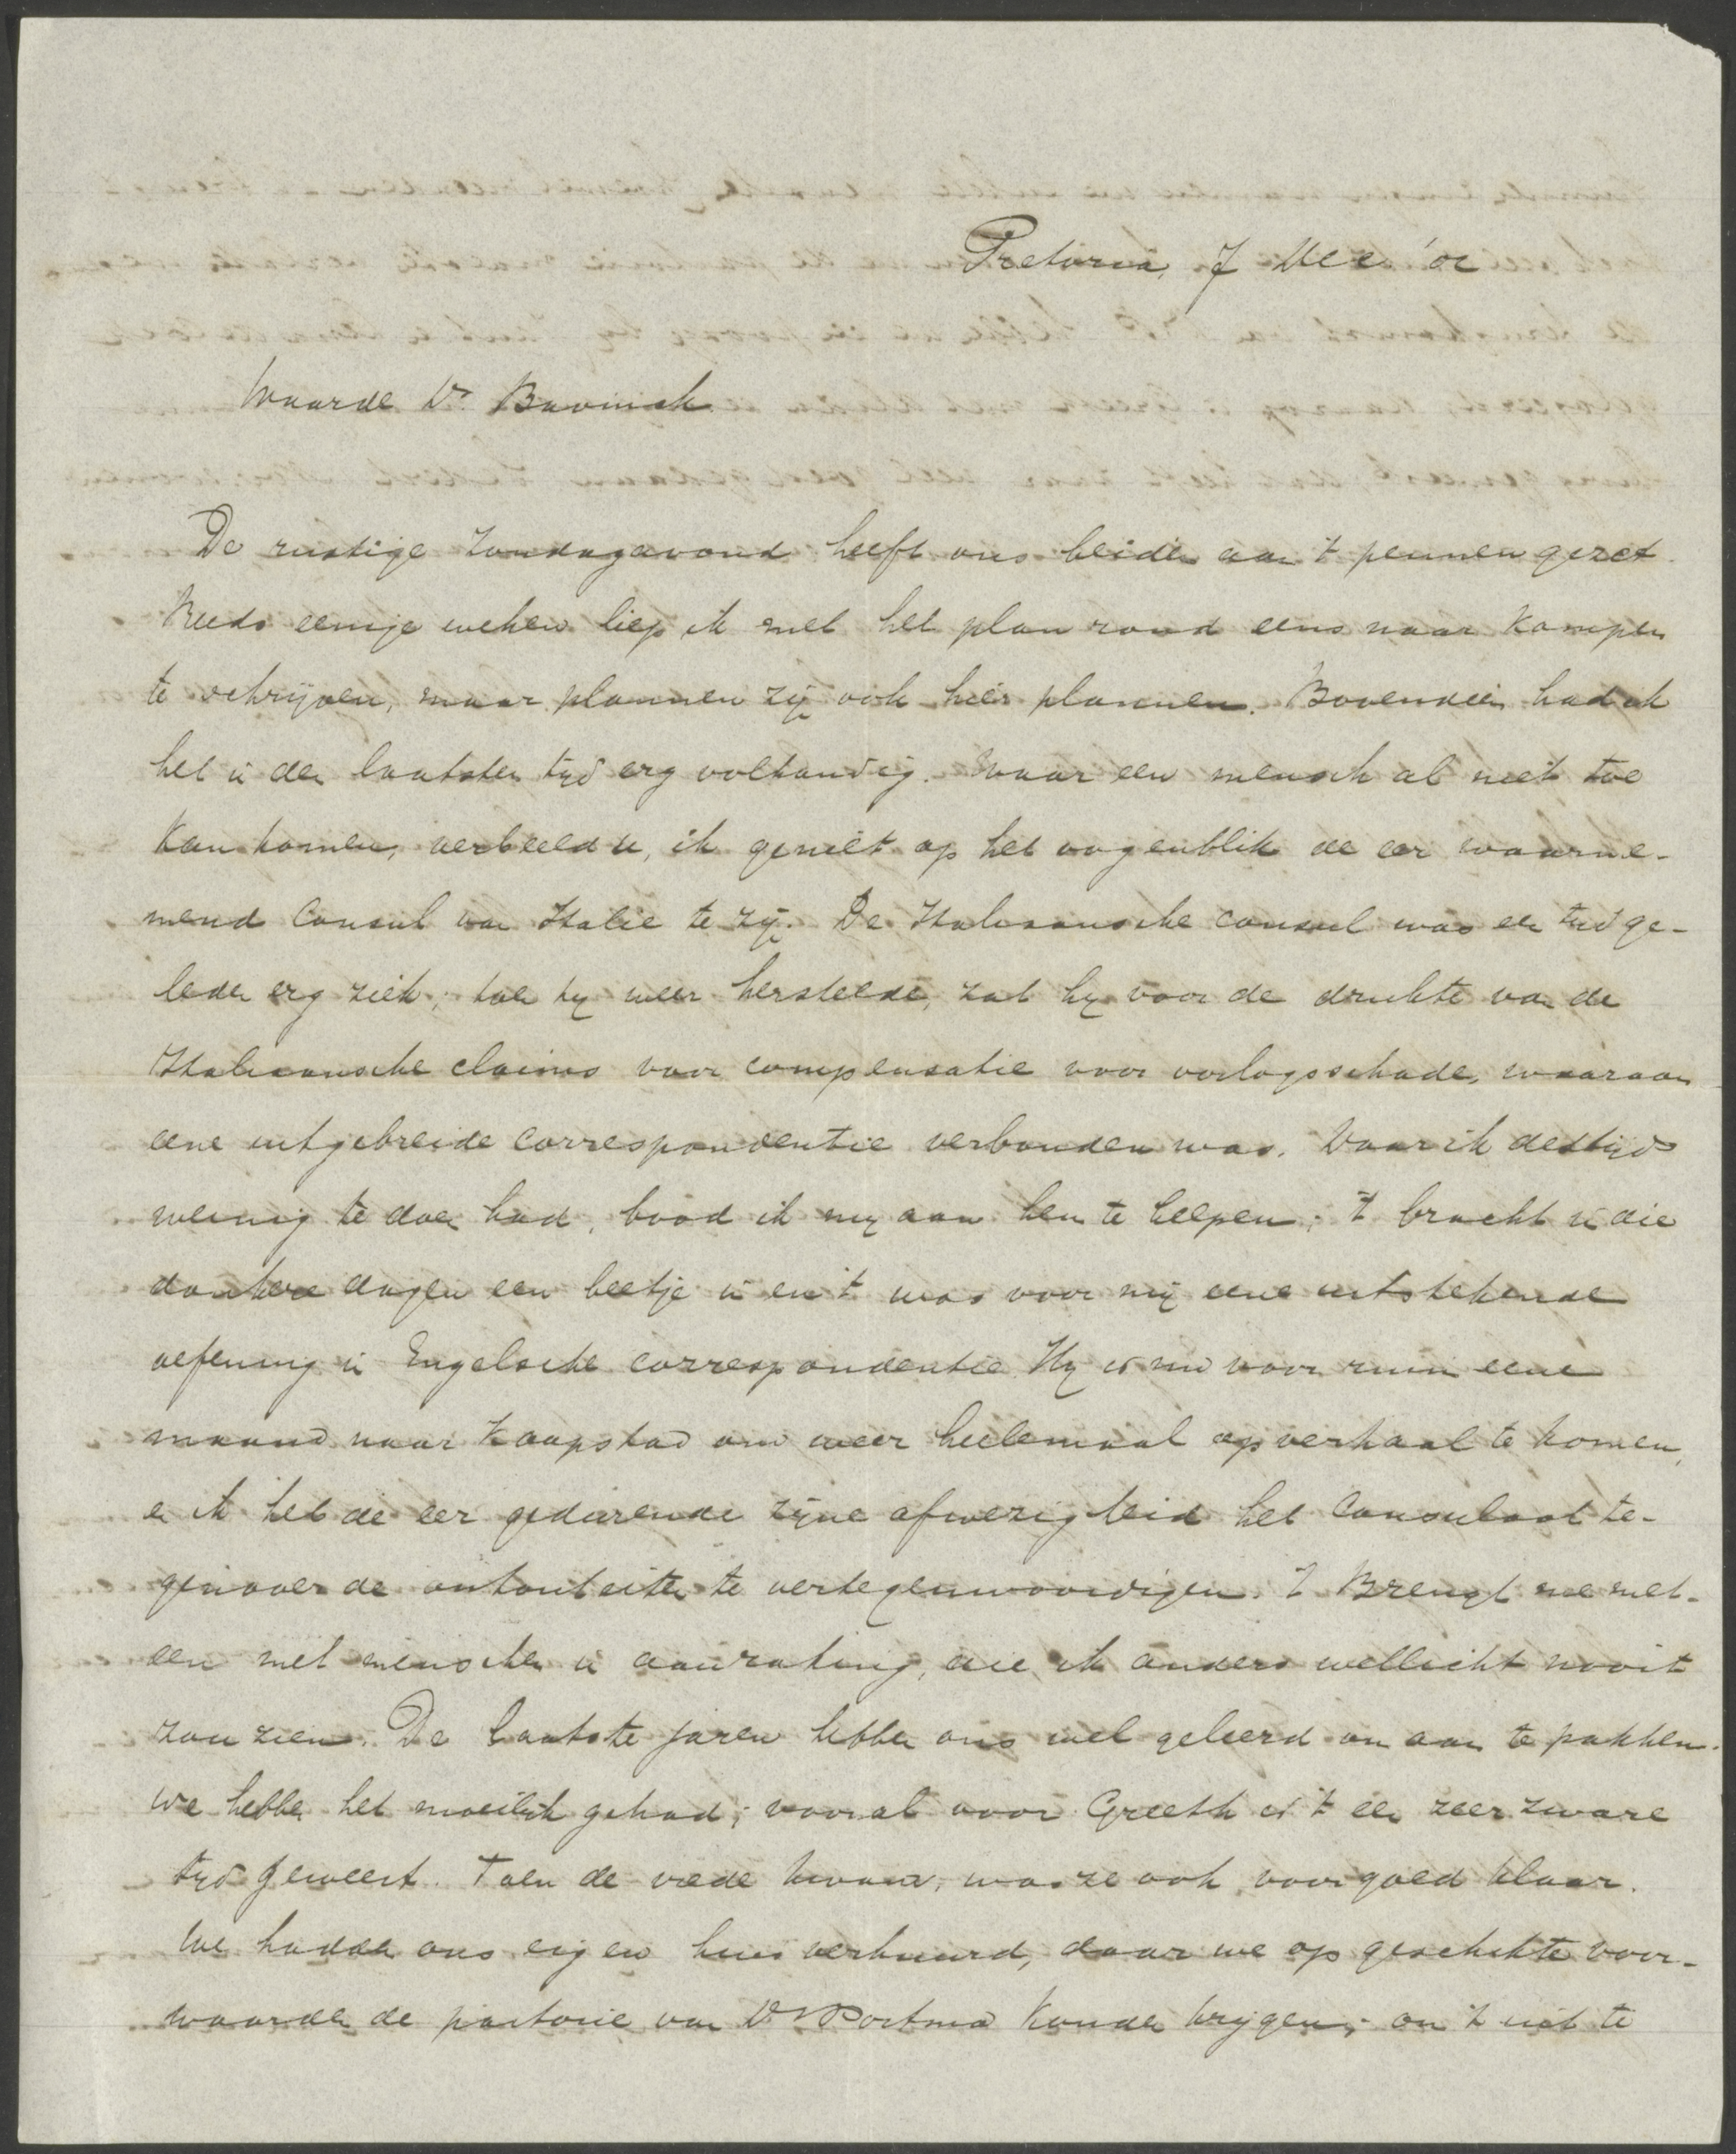 Pretoria, 7 Dec '02
Waarde Ds. Bavinck
De rustige Zondagavond heeft ons beiden aan 't pennen gezet.
Reeds eenige weken liep ik met het plan rond eens naar Kampen
te schrijven, maar plannen zijn ook hier plannen. Bovendien had ik
het in den laatsten tijd erg volhandig. Waar een mensch al niet toe
kan komen, verbeeld u, ik geniet op het oogenblik de eer waarne-
mend Consul van Italie te zijn. De Italiaansche consul was een tijd ge-
leden erg ziek; toen hij weer herstelde, zat hij voor de drukte van de
Italiaansche claims voor compensatie voor oorlogsschade, waaraan
eene uitgebreide correspondentie verbonden was. Daar ik destijds
weinig te doen had, bood ik mij aan hem te helpen; 't bracht in die
donkere dagen een beetje in en 't was voor mij eene uitstekende
oefening in Engelsche correspondentie. Hij is nu voor ruim eene
maand naar Kaapstad om weer heelemaal op verhaal te komen,
en ik heb de eer gedurende zijne afwezigheid het Consulaat te-
genover de autoriteiten te vertegenwoordigen. 't Brengt me met-
een met menschen in aanraking, die ik anders wellicht nooit
zou zien. De laatste jaren hebben ons wel geleerd om aan te pakken.
We hebben het moeilijk gehad; vooral voor Greeth is 't een zeer zware
tijd geweest. Toen de vrede kwam, was ze ook voorgoed klaar.
We hadden ons eigen huis verhuurd, daar we op geschikte voor-
waarden de pastorie van Ds Postma konden krijgen; om 't niet te